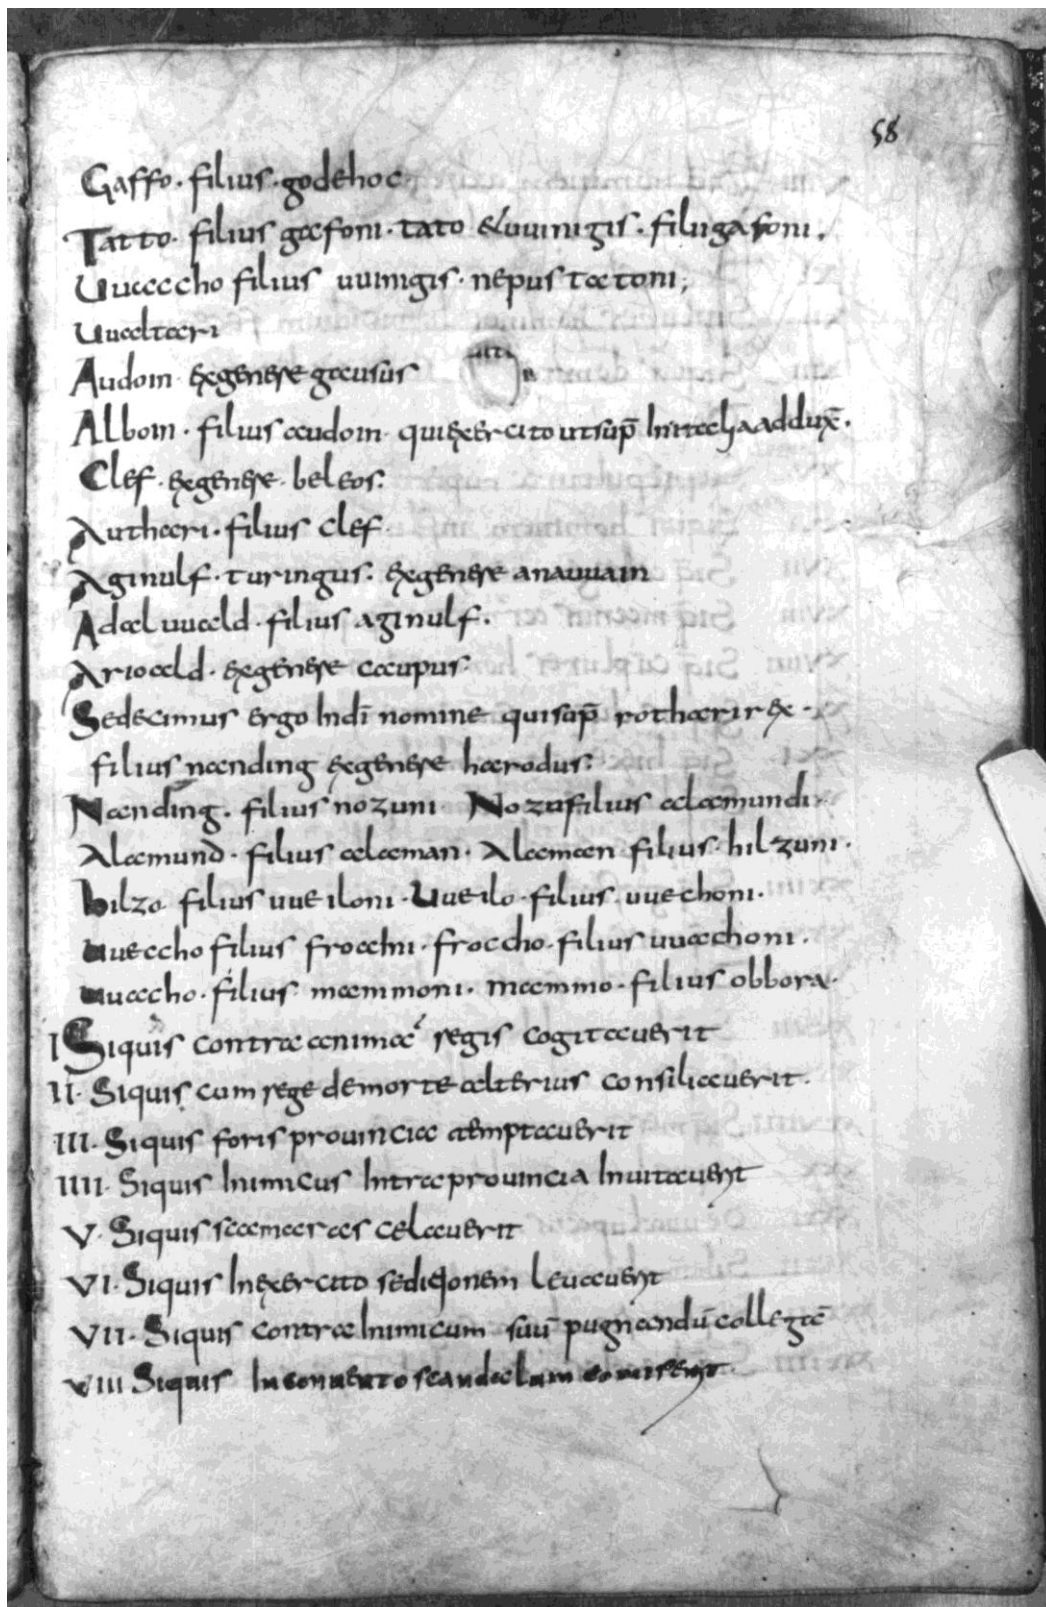 58
Gaffo. filius. godehoc
Tatto. filius gafoni. tato & uuinigis. filii gafoni.
Uuaccho filius uuinigis. nepus tatoni;
Uualtari
Audoin exgenere gausus
Alboin. filius audoin. qui exercito ut sup̄ In itacha adduxē.
Clef. exgenere. beleos.
Authari. filius Clef.
Aginulf. turingus. exgenere anauuain
Adaluuald. filius aginulf.
Arioald. exgenere caupus
Sedecimus ergo In dī nomine qui sup̄ rothari rex.
filius nanding exgenere harodus.
Nanding. filius nozuni Nozu filius alamundi.
Alamund. filius alaman. Alaman filius. hilzuni.
hilzo. filius uueiloni. Uueilo. filius. uuechoni.
uueccho filius frocchni. froccho. filius uuacchoni.
uuaccho. filius mammoni. mammo. filius obbora.
I Siquis contra anima regis cogitauerit
II. Siquis cum rege de morte alterius consiliauerit.
III. Siquis foris prouincia temptauerit
IIII. Siquis Inimicus Intra prouincia Inuitauerit
V. Siquis scamaras celauerit
VI. Siquis In exercito seditionem leuauerit
VII. Siquis contra Inimicum suū pugnandū collegā
VIII Siquis In conuento scandalum commiserit